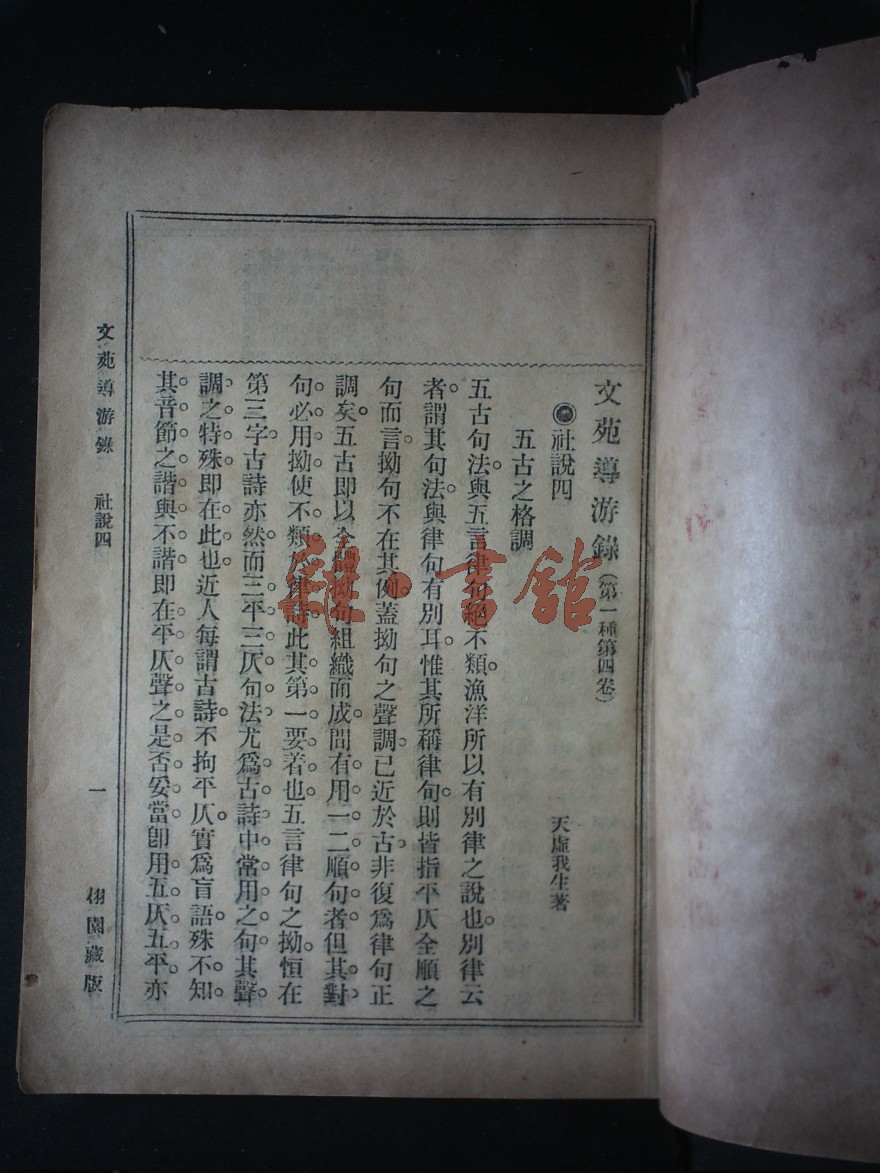 文苑導游錄（第一種第四卷）
◉社說四
天虛我生著
五古之格調
五古句法與五言律句絕不類。漁洋所以有別律之說也。別律云
者。謂其句法與律句有別耳。惟其所稱律句。則皆指平仄全順之
句而言。拗句不在其例。蓋拗句之聲調。已近於古。非復爲律句正
調矣。五古即以拗句組織而成。間有用一二順句者。但其對
句必用拗。使不類於律詩。此其第一要着也。五言律句之拗。恒在
第三字。古詩亦然。而三平三仄句法。尤爲古詩中常用之句。其聲
調之特殊。即在此也。近人每謂古詩不拘平仄。實爲盲語。殊不知
其音節之諧與不諧。即在平仄聲之是否妥當。即用五仄五平。亦
文苑導游錄 社說四 一 栩園藏版
雜·書館